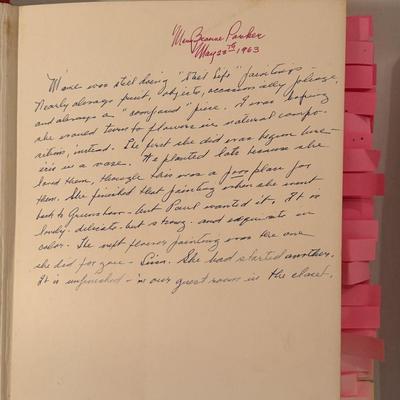 Parker
May 23th 1963
was still doing "Still Life" paintings -
Nearly always fruit, objects, occasionally
and always a "confused" piece. I was hoping
she would turn to flowers in natural compo-
sitions, instead. The first she did was begun here -
iris in a vase. We planted lots because she
loved them, though this was a poor plan for
them. She finished that painting when she went
back to - but Paul wanted it, It is
lovely - delicate - but strong - and exquisite in
color. The next flower painting was the one
she did for you - . She had started another.
It is unfinished - in our guest room in the closet.